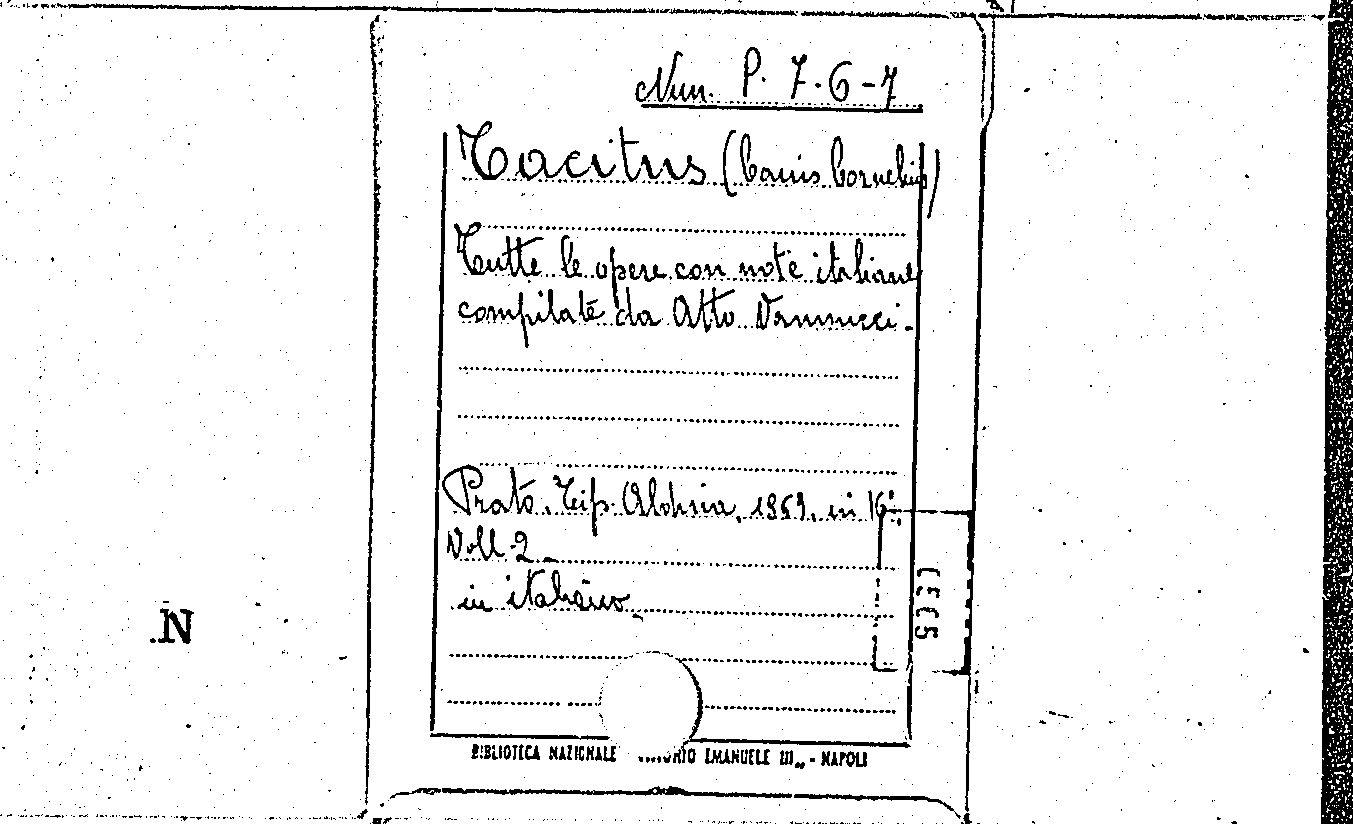 Num. P. 7.6-7
Tacitus (Caius Cornelius)
Tutte le opere con note italiane
compilate da Atto Vannucci.
Prato, Tip. Aldina, in 16º:
Voll. 2
in italiano
N
BIBLIOTECA NAZIONALE EMANUELE III„ - NAPOLI